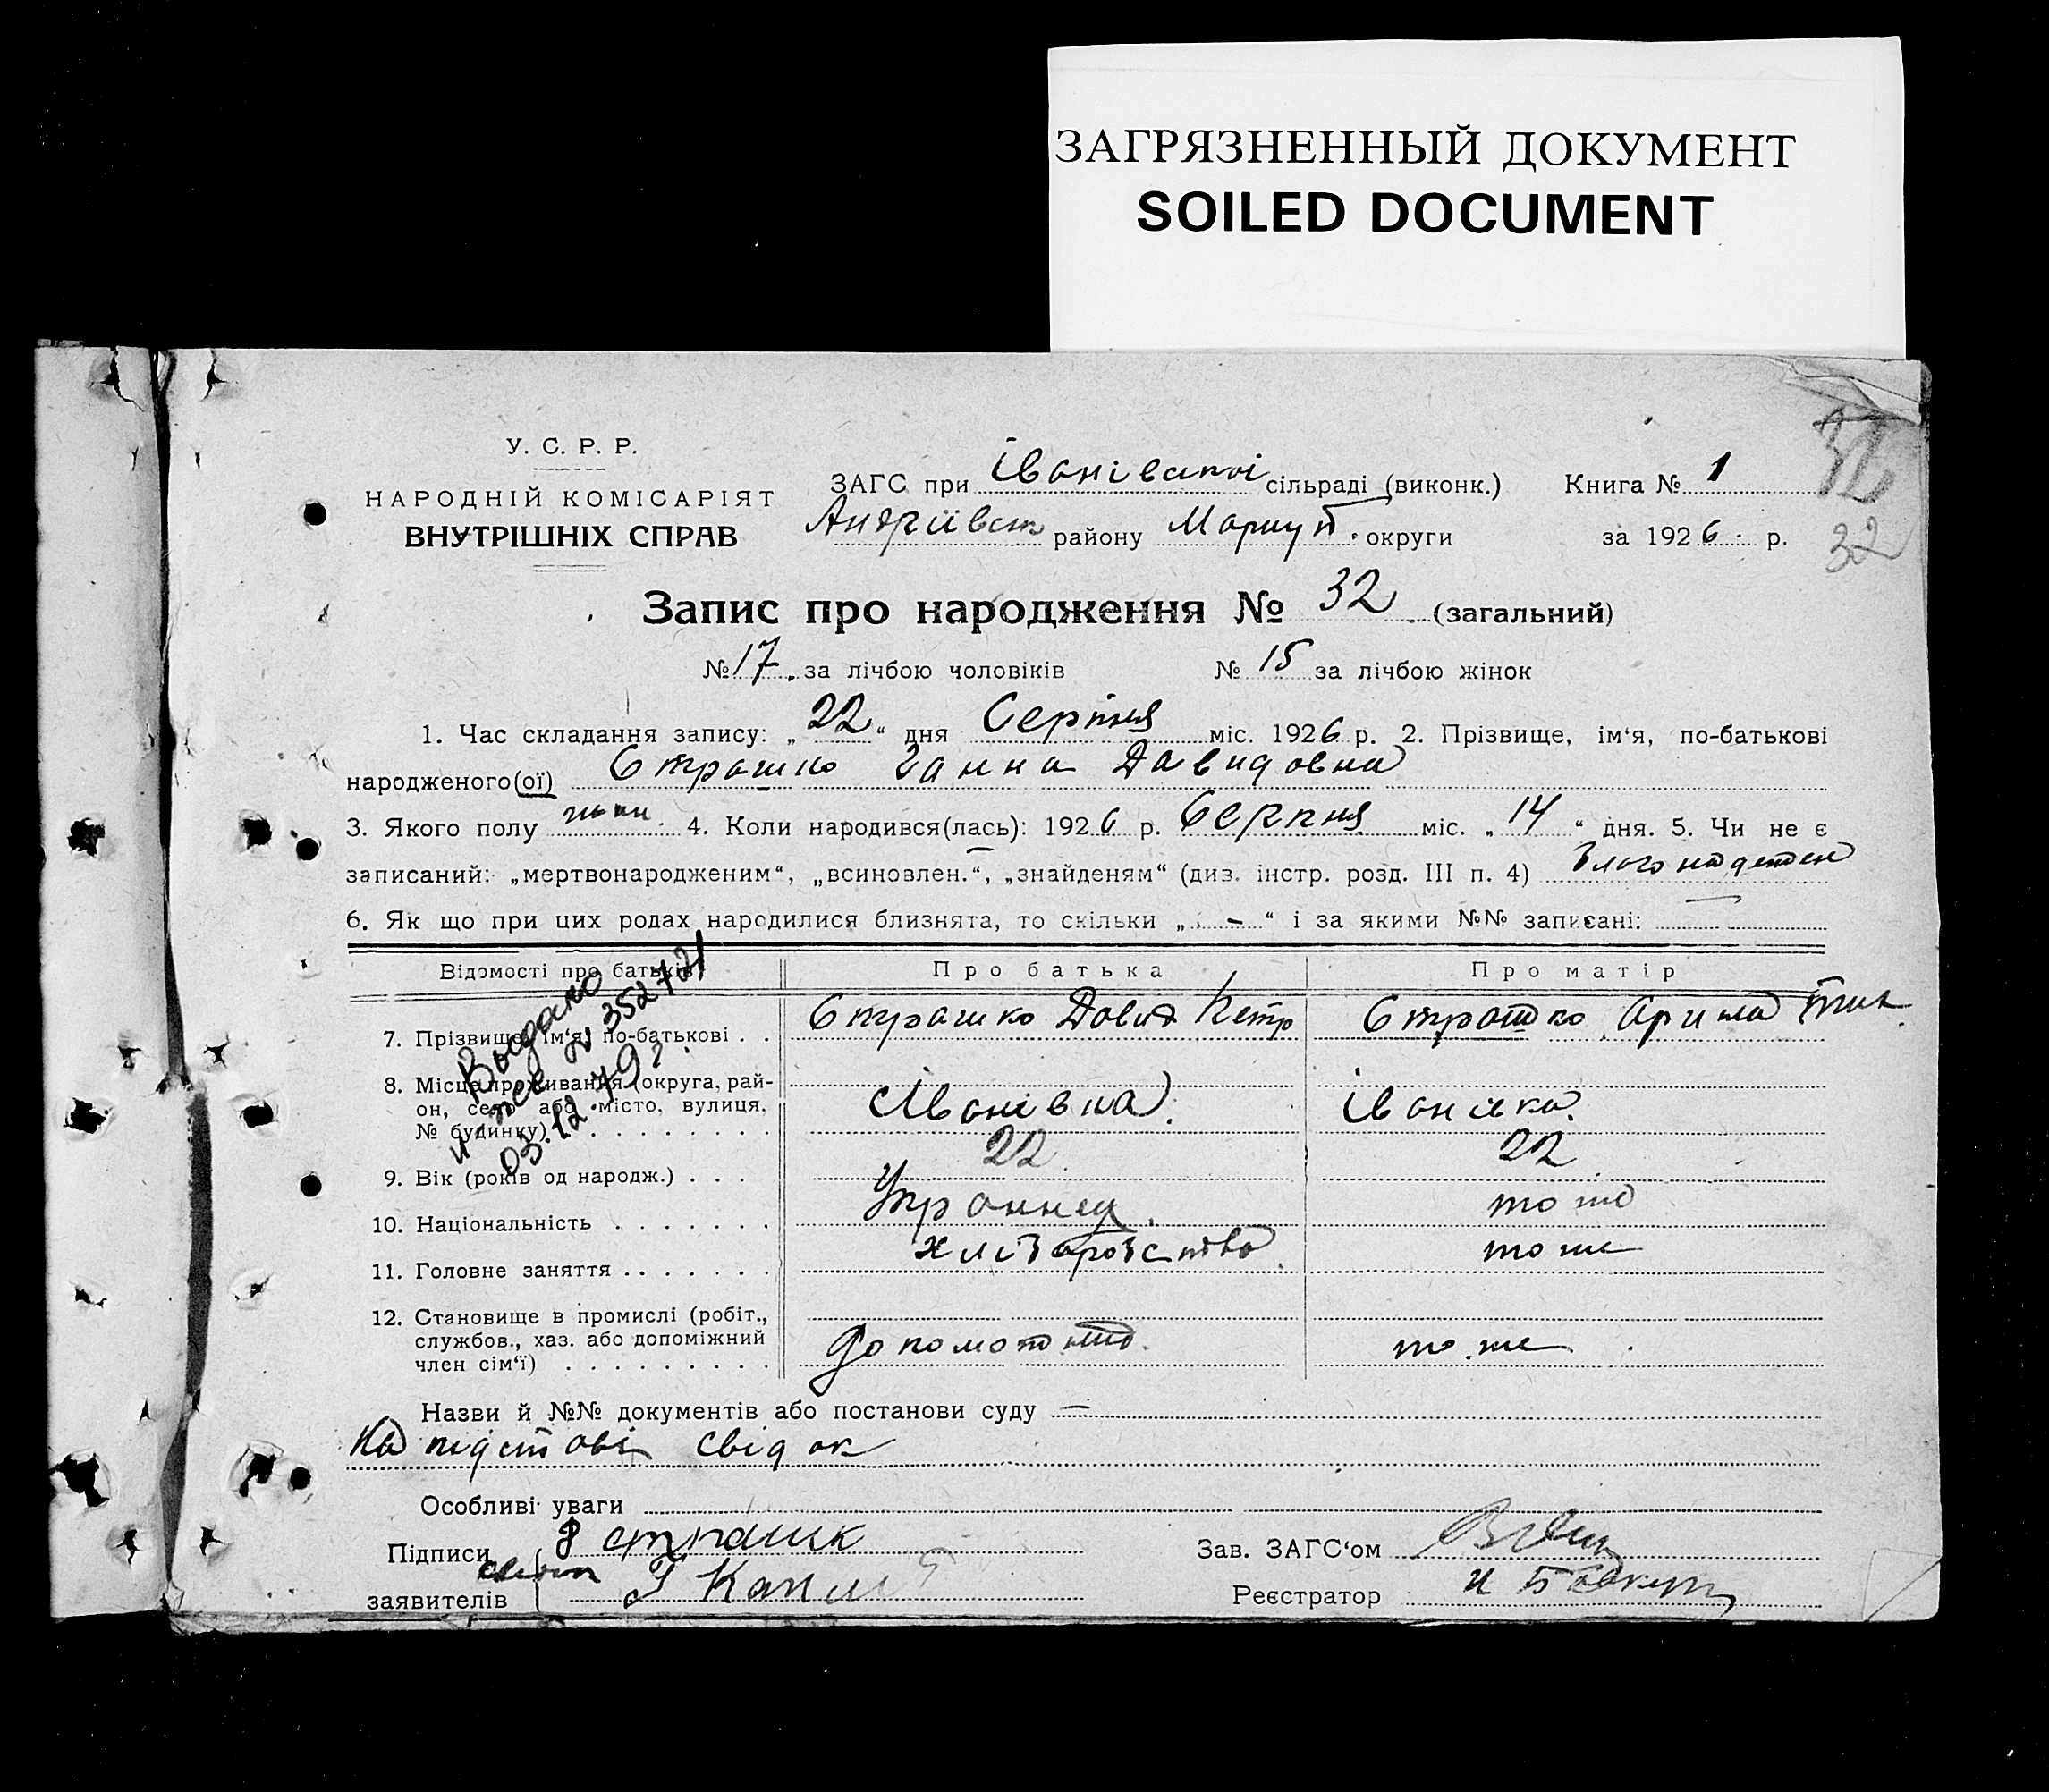 ЗАГРЯЗНЕННЫЙ ДОКУМЕНТ
SOILED DOCUMENT
У. С. Р. Р.
НАРОДНІЙ КОМІСАРІЯТ
ВНУТРІШНІХ СПРАВ
ЗАГС при Іванівскої сільраді (виконк.) Книга № 1
Андріївск району Мариуп. округи за 1926 р.
32
Запис про народження № 32 (загальний)
№ 17 за лічбою чоловіків № 15 за лічбою жінок
1. Час складання запису: „22“ дня Серпня міс. 1926 р. 2. Прізвище, ім‘я, по-батькові
народженого(ої) Страшко Ганна Давидовна
3. Якого полу жин. 4. Коли народився(лась): 1926 р. Серпня міс. „14“ дня. 5. Чи не є
записаний: „мертвонародженим“, „всиновлен.“, „знайденям“ (див. інстр. розд. III п. 4)
6. Як що при цих родах народилися близнята, то скільки „ – “ і за якими №№ записані:
Відомості про батьків
Про батька
Про матір
7. Прізвище, ім‘я, по-батькові . . Страшко Давид Петр Страшко
8. Місце проживання (округа, рай-
он, село або місто, вулиця,
№ будинку) . . . . . . . . Іванівка. Іванівка.
9. Вік (років од народж.) . . . 22 22
10. Національність . . . . . . . Украинец. тоже
11. Головне заняття . . . . . . . хліборобство тоже
12. Становище в промислі (робіт.,
службов., хаз. або допоміжний
член сім‘ї) . . . . . . . . . тоже
Выдано
и-ясв № 352721
03.12.79г.
Назви й №№ документів або постанови суду —
На підставі свідок
Особливі уваги
Підписи Страшк
заявителів
Зав. ЗАГС‘ом
Реєстратор